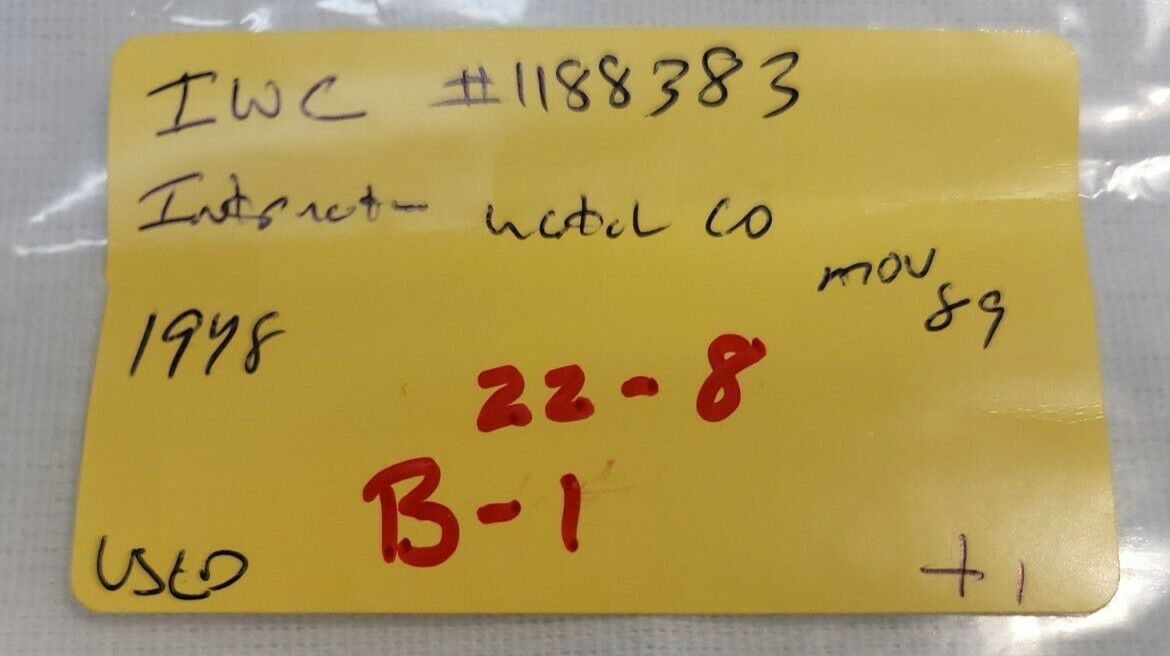 IWC #1188383
Internat- watch CO
mov
89
1948
22-8
B-1
USED
+1